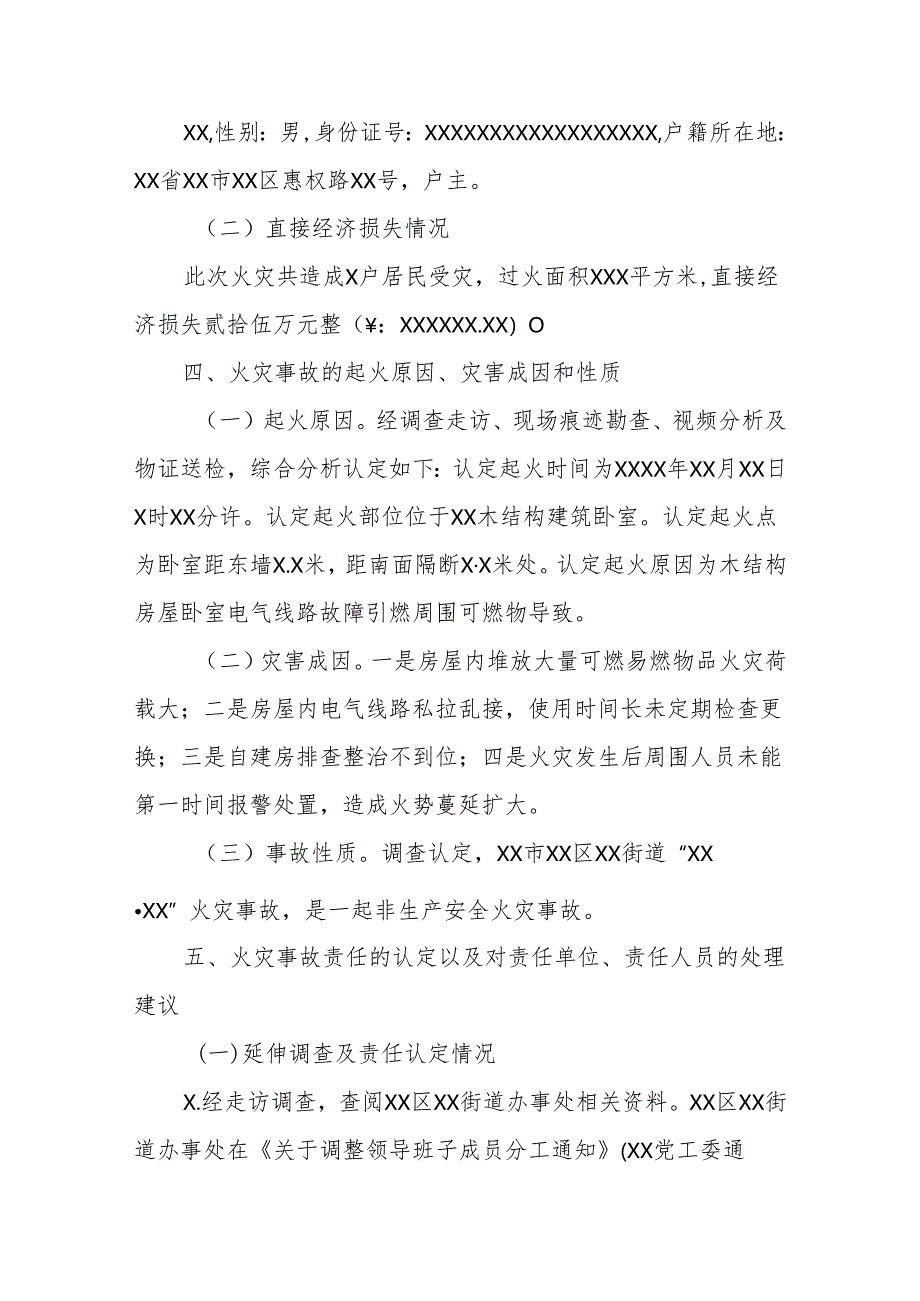 XX,性别：男,身份证号：XXXXXXXXXXXXXXXXXX,户籍所在地：
XX省XX市XX区惠权路XX号，户主。
（二）直接经济损失情况
此次火灾共造成X户居民受灾，过火面积XXX平方米,直接经
济损失贰拾伍万元整（¥：XXXXXX.XX）O
四、火灾事故的起火原因、灾害成因和性质
（一）起火原因。经调查走访、现场痕迹勘查、视频分析及
物证送检，综合分析认定如下：认定起火时间为XXXX年XX月XX日
X时XX分许。认定起火部位位于XX木结构建筑卧室。认定起火点
为卧室距东墙X.X米，距南面隔断X·X米处。认定起火原因为木结构
房屋卧室电气线路故障引燃周围可燃物导致。
（二）灾害成因。一是房屋内堆放大量可燃易燃物品火灾荷
载大；二是房屋内电气线路私拉乱接，使用时间长未定期检查更
换；三是自建房排查整治不到位；四是火灾发生后周围人员未能
第一时间报警处置，造成火势蔓延扩大。
（三）事故性质。调查认定，XX市XX区XX街道“XX
•XX”火灾事故，是一起非生产安全火灾事故。
五、火灾事故责任的认定以及对责任单位、责任人员的处理
建议
(一)延伸调查及责任认定情况
X.经走访调查，查阅XX区XX街道办事处相关资料。XX区XX街
道办事处在《关于调整领导班子成员分工通知》(XX党工委通